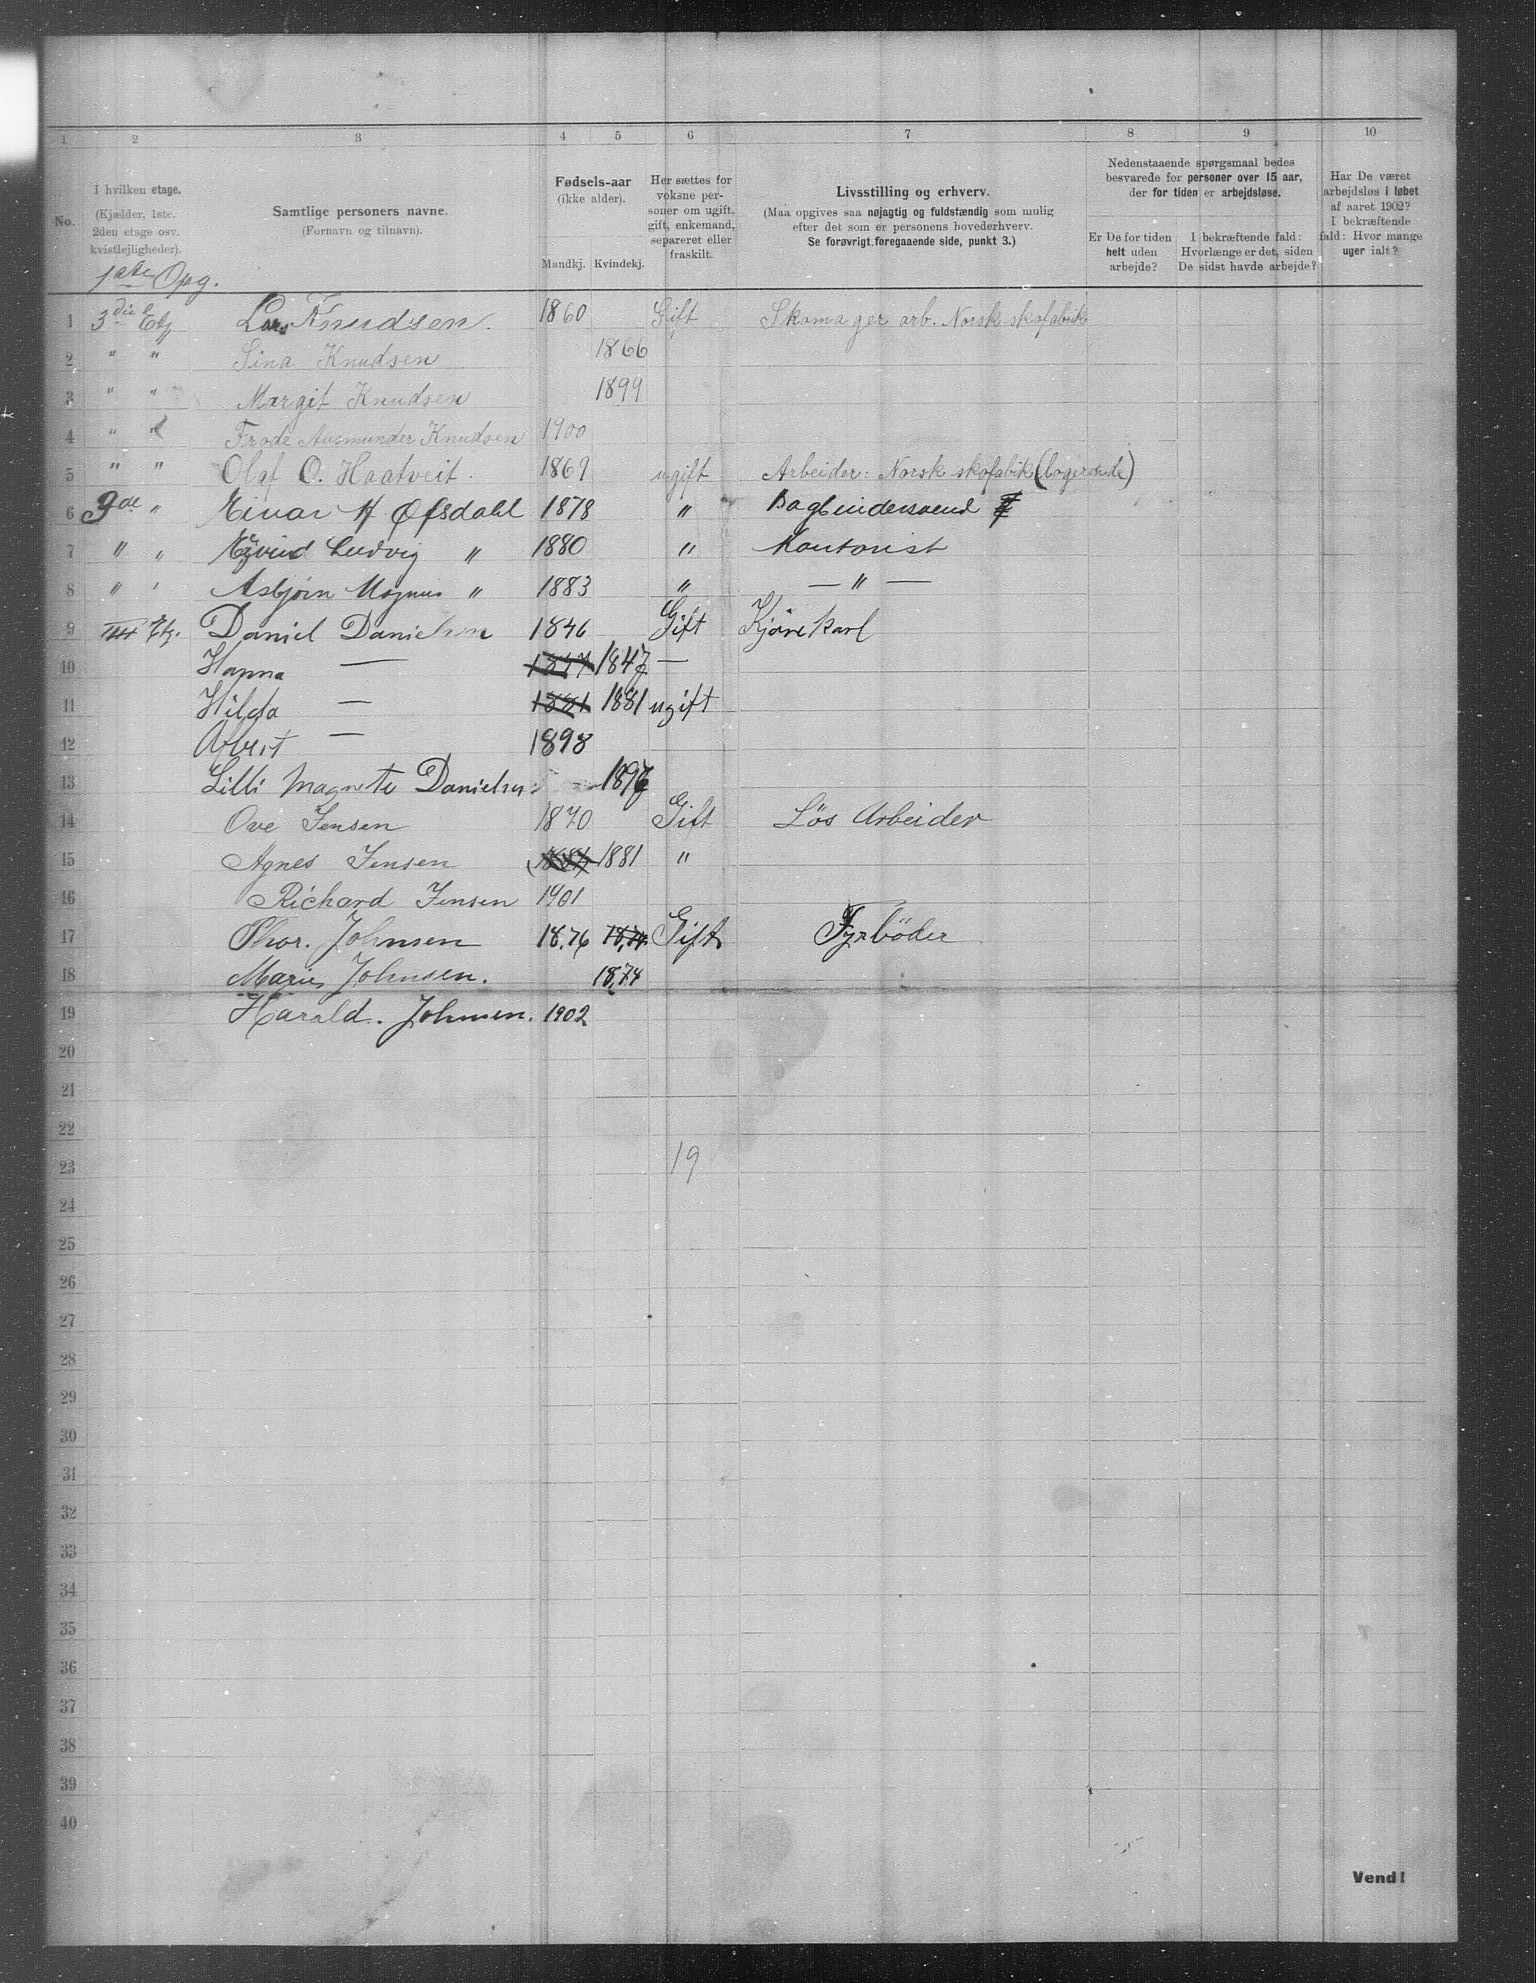 1 2 3 4 5 6 7 8 9 10
No.
I hvilken etage.
(Kjælder, 1ste.
2den etage osv.
kvistlejligheder).
Samtlige personers navne.
(Fornavn og tilnavn).
Fødsels-aar
(ikke alder).
Mandkj. Kvindekj.
Her sættes for
voksne per-
soner om ugift,
gift, enkemand,
separeret eller
fraskilt.
Livsstilling og erhverv.
(Maa opgives saa nøjagtig og fuldstændig som mulig
efter det som er personens hovederhverv.
Se forøvrigt foregaaende side, punkt 3.)
Nedenstaaende spørgsmaal bedes
besvarede for personer over 15 aar,
der for tiden er arbejdsløse.
Er De for tiden
helt uden
arbejde?
I bekræftende fald:
Hvorlænge er det, siden
De sidst havde arbejde?
Har De været
arbejdsløs i løbet
af aaret 1902?
I bekræftende
fald: Hvor mange
uger ialt?
1ste Opg.
1 3die Etg Lars Knudsen. 1860 Gift Skomager arb. Norsk skofabrik
2 " " Sina Knudsen 1866
3 " " Margit Knudsen 1899
4 " " Frode Ausmunder Knudsen 1900
5 " " Olaf O. Haatveit. 1869 ugift Arbeider: Norsk skofabik (logerende)
6 3de " Einar H Øfsdahl 1878 " Bogbindersvend
7 " " Eyvind Ludvig " 1880 " Kontorist
8 " " Asbjørn Magnus " 1883 " — " —
9 III Etg. Daniel Danielsen 1846 Gift Kjørekarl
10 Hanna — 1847 1847 —
11 Hilda — 1881 1881 ugift
12 Albert — 1898
13 Lilli Magnete Danielsen 1897
14 Ove Jensen 1870 Gift Lös Arbeider
15 Agnes Jensen 1881 1881 "
16 Richard Jensen 1901
17 Thor. Johnsen 18,76 18,74 Gift Fyrböder
18 Marie Johnsen. 18,74
19 Harald. Johnsen. 1902
20
21
22
23 19
24
25
26
27
28
29
30
31
32
33
34
35
36
37
38
39
40
Vend!